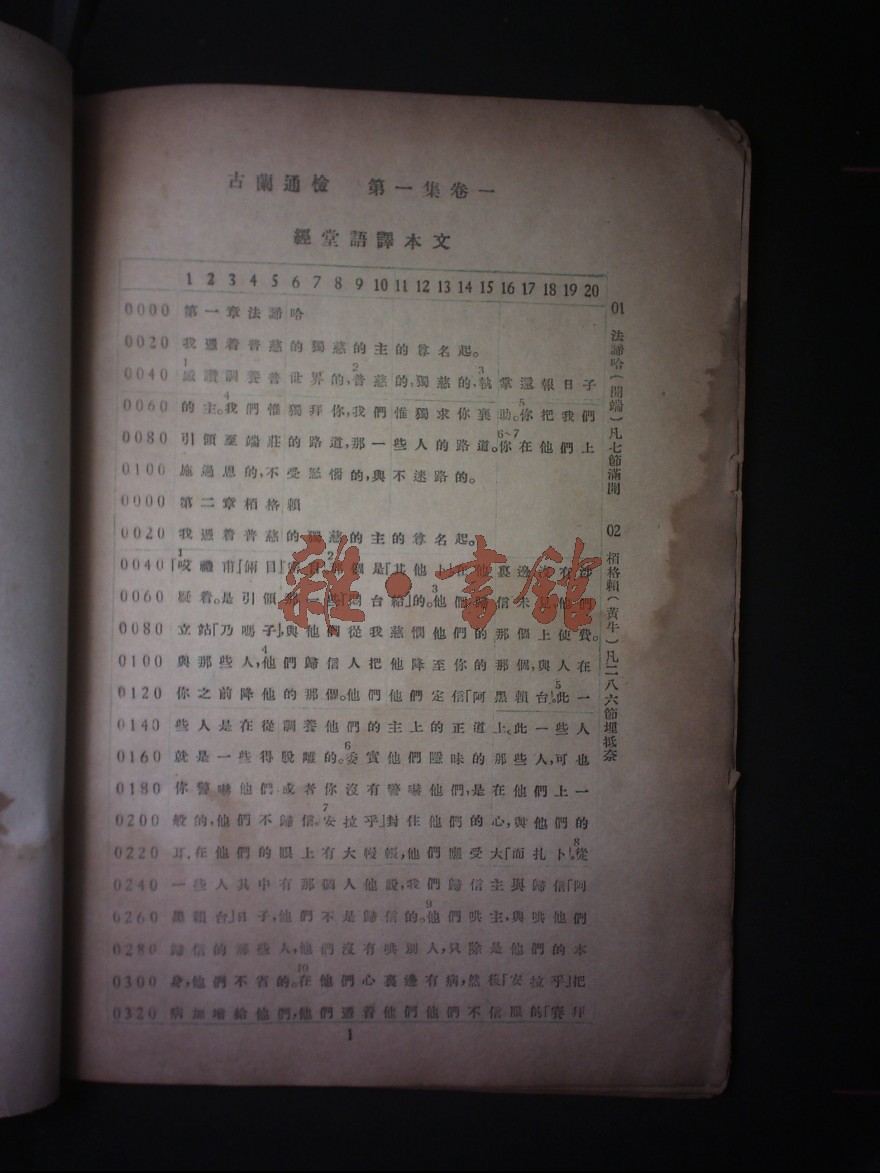 古蘭通檢 第一集卷一
經堂語譯本文
1 2 3 4 5 6 7 8 9 10 11 12 13 14 15 16 17 18 19 20
0000 第一章法諦哈
0020 我憑着普慈的獨慈的主的尊名起。
1 2 3
0040 感讚調養普世界的,普慈的,獨慈的,執掌還報日子
4 5
0060 的主。我們惟獨拜你,我們惟獨求你襄助。你把我們
6~7
0080 引領至端莊的路道,那一些人的路道。你在他們上
0100 施過恩的,不受惱的,與不迷路的。
0000 第二章栢格賴
0020 我憑着普慈的獨慈的主的尊名起。
1 2
0040 那個是
3
0060 着。是引領那一些的。他們歸信未見,他們
0080 立站「乃嗎子」,與他們從我慈憫他們的那個上使費。
4
0100 與那些人,他們歸信人把他降至你的那個,與人在
5
0120 你之前降他的那個。他們他們定信「阿黑賴台」。此一
0140 些人是在從調養他們的主上的正道上。此一些人
6
0160 就是一些得脫離的。委實他們隱昧的那些人,可也
0180 你警嚇他們或者你沒有警嚇他們,是在他們上一
7
0200 般的,他們不歸信。「安拉乎」封住他們的心,與他們的
8
0220 耳,在他們的眼上有大幔帳,他們應受大「而扎卜」。從
0240 一些人其中有那個人他說,我們歸信主與歸信「阿
9
0260 黑賴台」日子,他們不是歸信的。他們哄主,與哄他們
0280 歸信的那些人,他們沒有哄別人,只除是他們的本
10
0300 身,他們不省的。在他們心裏邊有病,然後「安拉乎」把
0320 病加增給他們,他們憑着他們他們不信服的「賽拜
1
01 法諦哈(開端)凡七節滿開
02 栢格賴(黃牛)凡二八六節埋抵奈
雜·書館